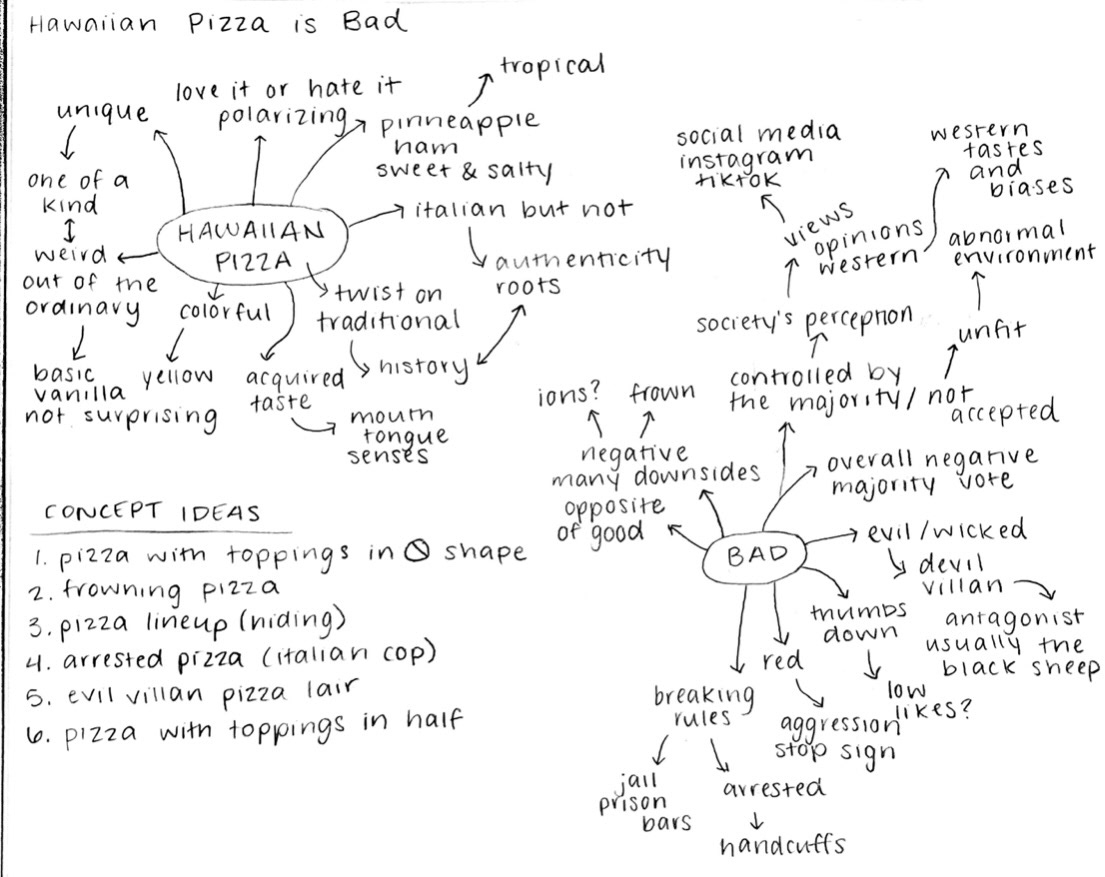 Hawaiian Pizza is Bad
tropical
love it or hate it
polarizing
unique
pinneapple
ham
sweet & salty
one of a
kind
weird
out of the
ordinary
HAWAIIAN
PIZZA
italian but not
authenticity
roots
twist on
traditional
history
colorful
yellow
basic
vanilla
not surprising
acquired
taste
mouth
tongue
senses
social media
instagram
tiktok
western
tastes
and
biases
views
opinions
western
abnormal
environment
society's perception
unfit
controlled by
the majority / not
accepted
ions?
frown
negative
many downsides
opposite
of good
overall negative
majority vote
BAD
evil / wicked
devil
villan
antagonist
usually the
black sheep
thumbs
down
low
likes?
red
aggression
stop sign
breaking
rules
jail
prison
bars
arrested
handcuffs
CONCEPT IDEAS
1. pizza with toppings in 🛇 shape
2. frowning pizza
3. pizza lineup (hiding)
4. arrested pizza (italian cop)
5. evil villan pizza lair
6. pizza with toppings in half